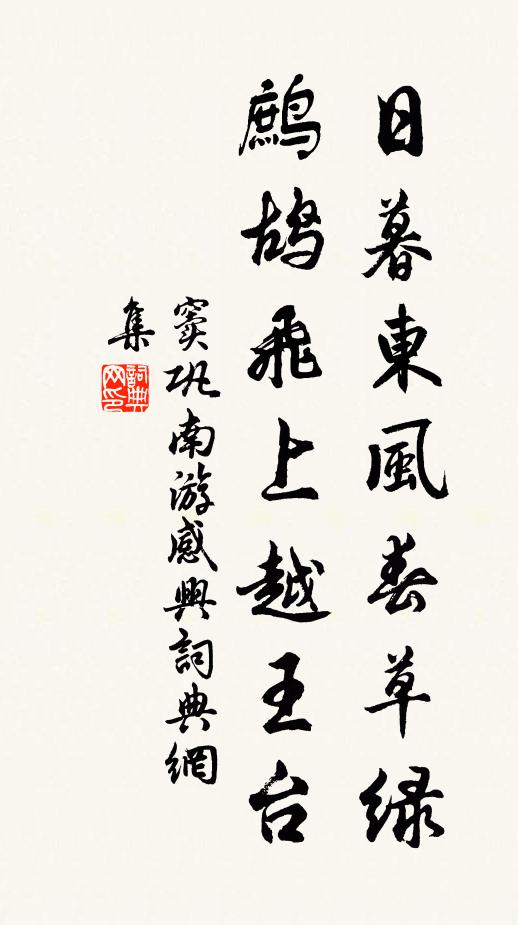 日暮東風春草綠
鷓鴣飛上越王台
竇巩南游感興詞典網
集
詞典
网印